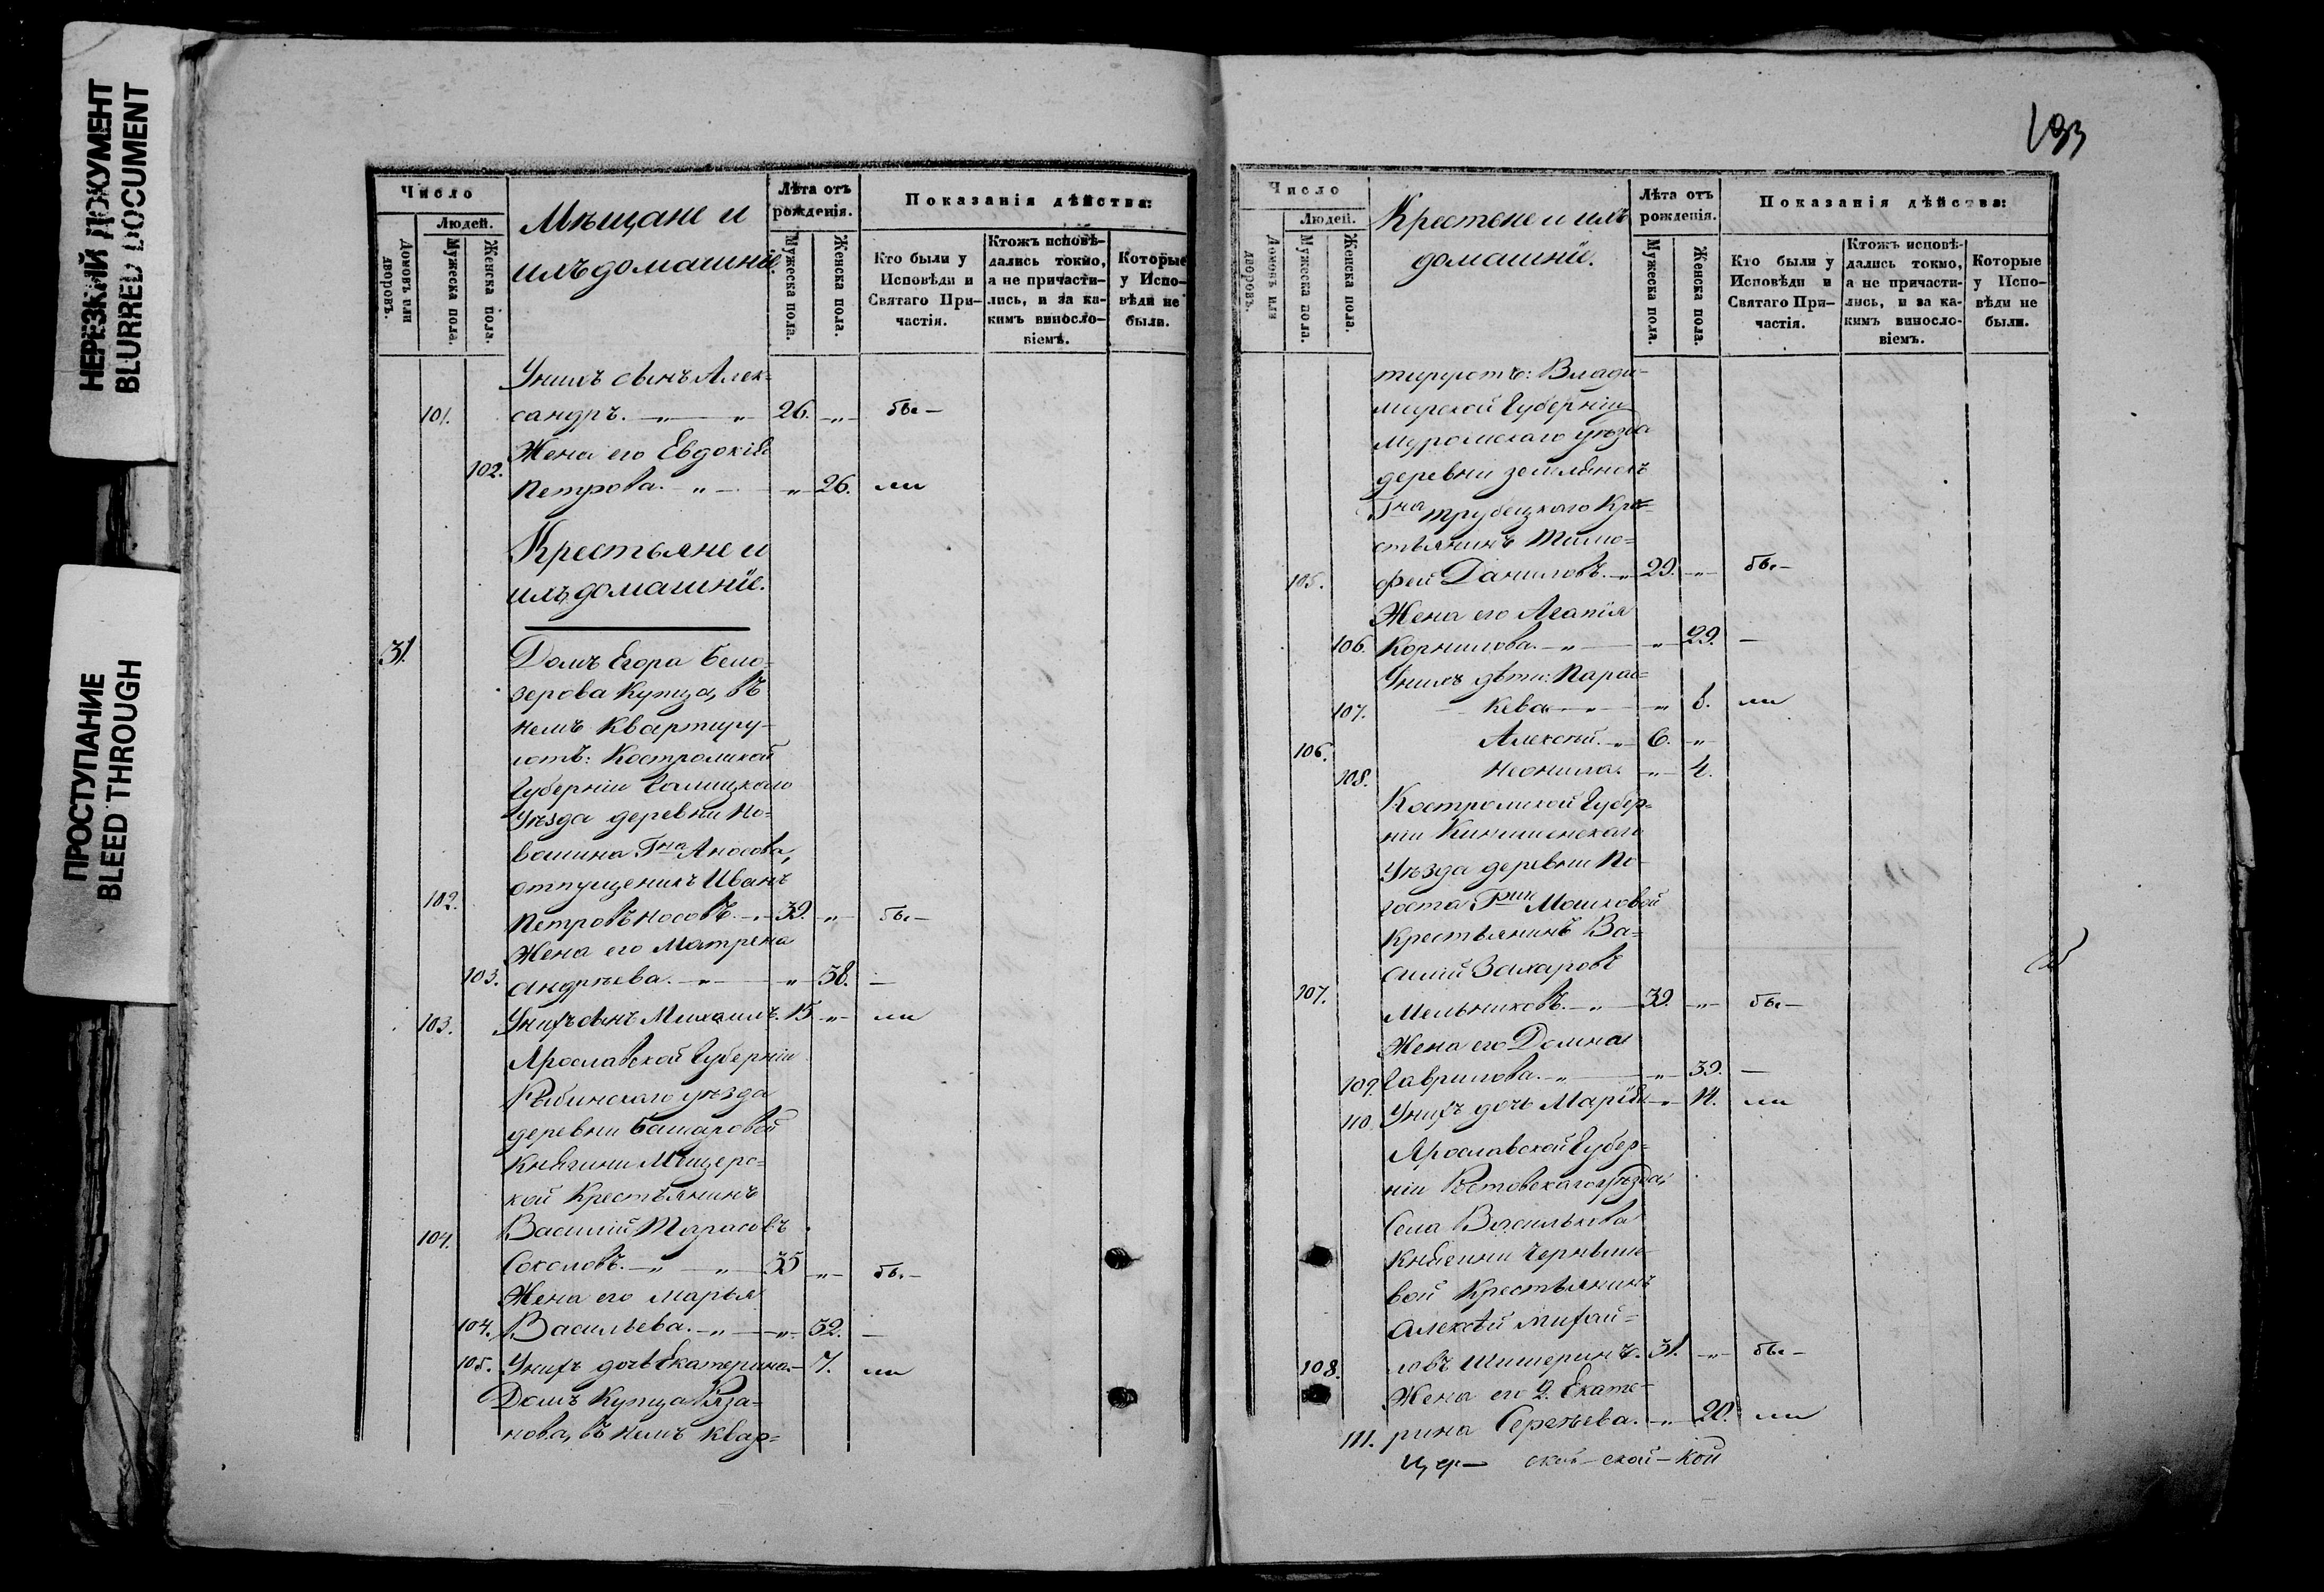 НЕРЕЗКИЙ ДОКУМЕНТ
BLURRED DOCUMENT
ПРОСТУПАНИЕ
BLEED THROUGH
Число
Людей.
Домовъ или дворовъ.
Мужеска пола.
Женска пола.
Мѣщане и
ихъ домашніе
Лѣта отъ рожденія.
Мужеска пола.
Женска пола.
Показанія дѣйства:
Кто были у Исповѣди и Святаго При-частія.
Ктожъ исповѣ-дались токмо, а не причасти-лись, и за ка-кимъ виносло-віемъ.
Которые у Испо-вѣди не были.
Унихъ сынъ Алек-
101. сандръ. 26. бы-
Жена его Евдокія
102. Петрова. 26. ли
Крестьяне и
ихъ домашніе.
31. Домъ Егора Бело-
зерова Купца, въ
немъ квартиру-
ютъ: Костромской
Губерніи Галицкаго
Уѣзда деревни
Гна Аносова,
отпущеникъ Иванъ
102. Петровъ Носовъ. 39. бы-
Жена его Матрена
103. Андреева. 38. -
103. Унихъ сынъ Михаилъ. 15 ли
Ярославской Губерніи
Рыбинскаго уѣзда
деревни
Княгини Мещерс-
кой Крестьянинъ
104. Василій Тарасовъ
Соколовъ. 35 бы-
Жена его Марья
104. Васильева. 32. -
105. Унихъ дочь Екатерина. 7. ли
Домъ Купца Ряза-
нова, въ немъ квар-
193
Число
Людей.
Домовъ или дворовъ.
Мужеска пола.
Женска пола.
Крестене и ихъ
домашніе.
Лѣта отъ рожденія.
Мужеска пола.
Женска пола.
Показанія дѣйства:
Кто были у Исповѣди и Святаго При-частія.
Ктожъ исповѣ-дались токмо, а не причасти-лись, и за ка-кимъ виносло-віемъ.
Которые у Испо-вѣди не были.
тируютъ: Влади-
мирской Губерніи
Муромскаго уѣзда
деревни
Гна Трубецкаго Кре-
стьянинъ Тимо-
105. фей Даниловъ. 29. бы-
Жена его Агапія
106. Корнилова. 29. -
Унихъ дѣти: Парас-
107. кева 8. ли
106. Алексей. 6.
108. Неонила 4.
Костромской Губер-
ніи Кинишенскаго
Уѣзда деревни По-
госта
Крестьянинъ Ва-
силій Захаровъ
107. Мельниковъ. 39. бы-
Жена его Домна
109. Гаврилова. 39. -
110. Унихъ дочь Марія 14. ли
Ярославской Губер-
ніи Ростовскаго уѣзда,
Села Василькова
Княгини Черныше-
вой Крестьянинъ
Алексѣй Михай-
108. ловъ Шишеринъ. 31. бы-
Жена его 2. Екате-
111. рина Сергѣева. 20. ли
ской - ской - кой